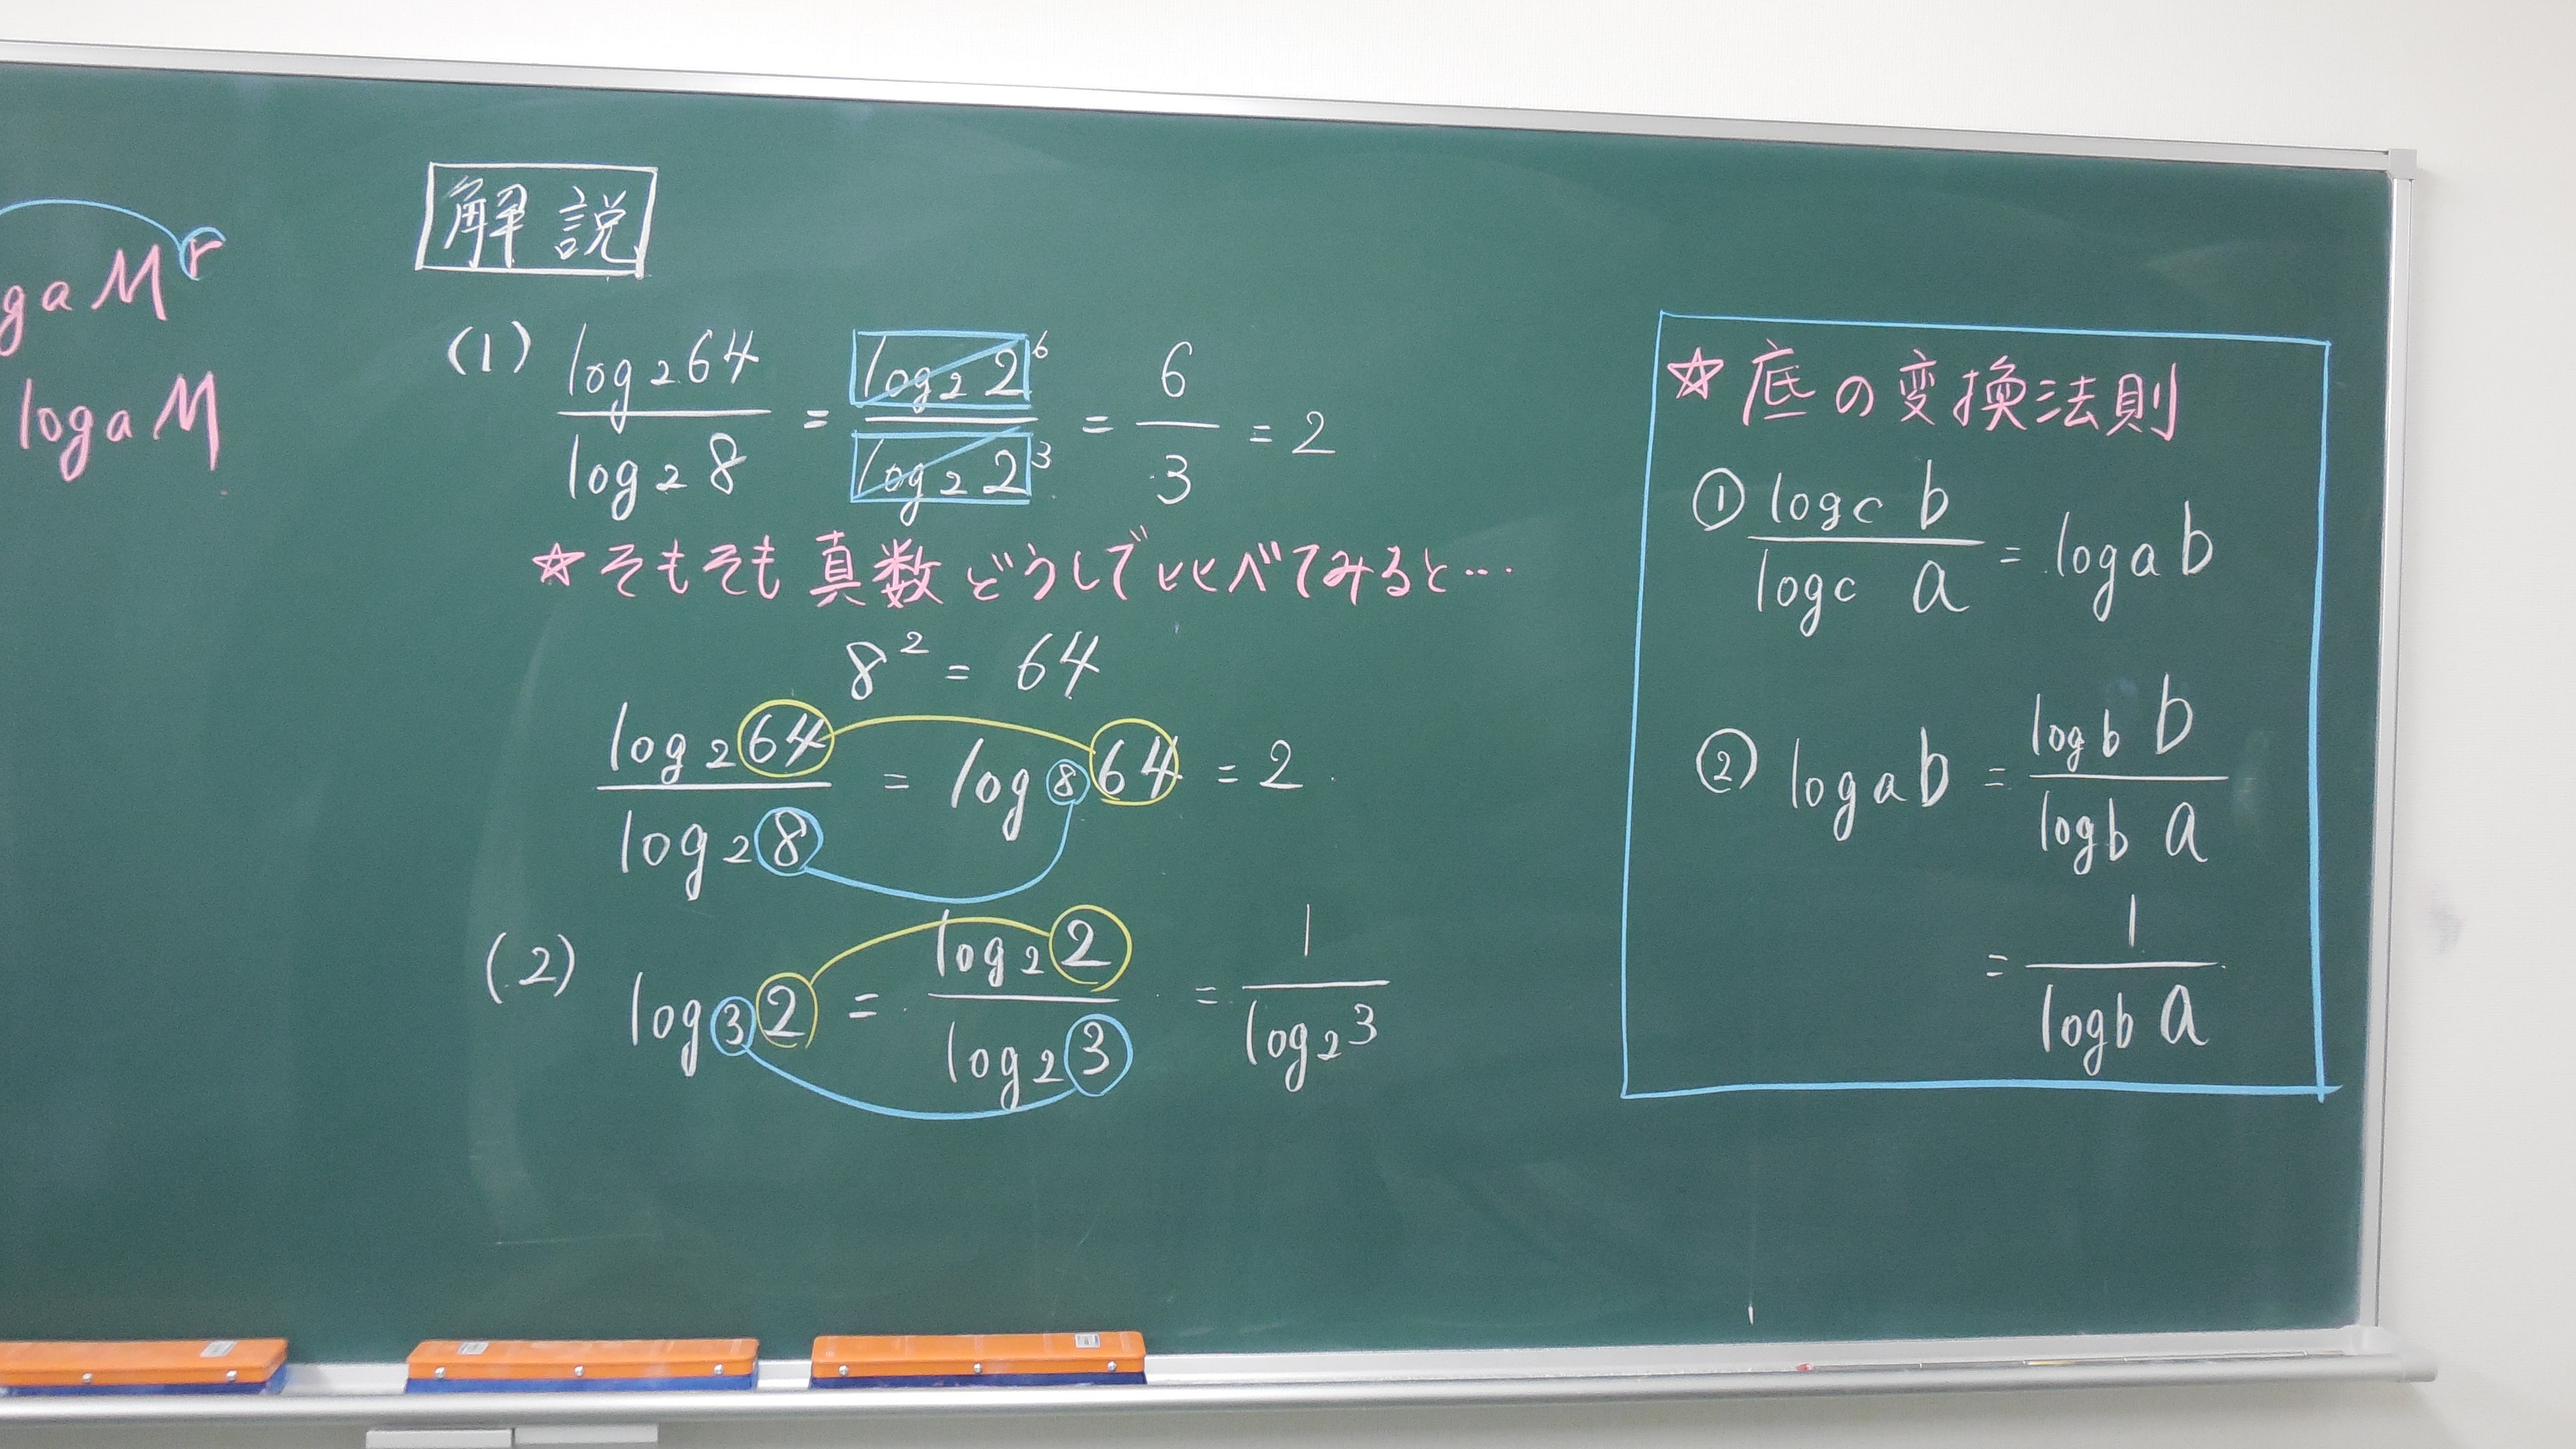 ga M^r
log a M
解説
(1) log₂64 / log₂8 = log₂2⁶ / log₂2³ = 6/3 = 2
☆そもそも真数どうしで比べてみると…
8² = 64
log₂64 / log₂8 = log₈64 = 2
(2) log₃2 = log₂2 / log₂3 = 1 / log₂3
☆底の変換法則
① log c b / log c a = log a b
② log a b = log b b / log b a
= 1 / log b a